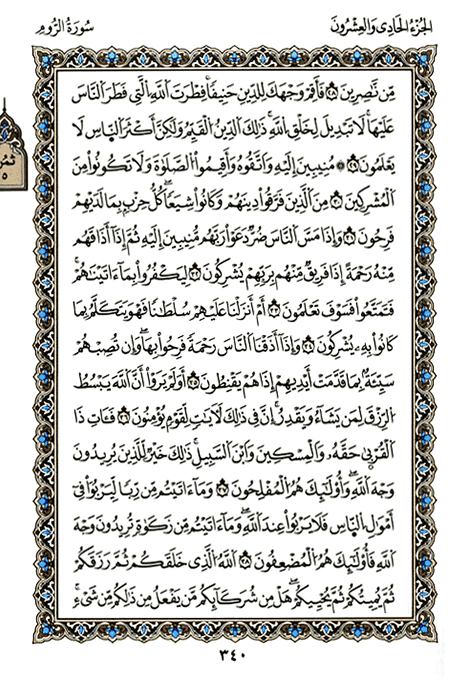 الجُزءُ الحَادِى وَالعِشْرُونَ
سُورَةُ الرُّومِ
مِّن نَّٰصِرِينَ ٢٨ فَأَقِمْ وَجْهَكَ لِلدِّينِ حَنِيفًا فِطْرَتَ اَللَّهِ اِلَّتِى فَطَرَ اَلنَّاسَ
عَلَيْهَا لَا تَبْدِيلَ لِخَلْقِ اِللَّهِ ذَٰلِكَ اَلدِّينُ اُلْقَيِّمُ وَلَٰكِنَّ أَكْثَرَ اَلنَّاسِ لَا
يَعْلَمُونَ ٢٩ ۞ مُنِيبِينَ إِلَيْهِ وَاتَّقُوهُ وَأَقِيمُوا اُلصَّلَوٰةَ وَلَا تَكُونُوا مِنَ
اَلْمُشْرِكِينَ ٣٠ مِنَ اَلَّذِينَ فَرَّقُوا دِينَهُمْ وَكَانُوا شِيَعًا كُلُّ حِزْبٍ بِمَا لَدَيْهِمْ
فَرِحُونَ ٣١ وَإِذَا مَسَّ اَلنَّاسَ ضُرٌّ دَعَوْا رَبَّهُم مُّنِيبِينَ إِلَيْهِ ثُمَّ إِذَا أَذَاقَهُم
مِّنْهُ رَحْمَةً إِذَا فَرِيقٌ مِّنْهُم بِرَبِّهِمْ يُشْرِكُونَ ٣٢ لِيَكْفُرُوا بِمَا ءَاتَيْنَٰهُمْ
فَتَمَتَّعُوا فَسَوْفَ تَعْلَمُونَ ٣٣ أَمْ أَنزَلْنَا عَلَيْهِمْ سُلْطَٰنًا فَهُوَ يَتَكَلَّمُ بِمَا
كَانُوا بِهِۦ يُشْرِكُونَ ٣٤ وَإِذَا أَذَقْنَا اَلنَّاسَ رَحْمَةً فَرِحُوا بِهَا وَإِن تُصِبْهُمْ
سَيِّئَةٌ بِمَا قَدَّمَتْ أَيْدِيهِمْ إِذَا هُمْ يَقْنَطُونَ ٣٥ أَوَلَمْ يَرَوْا أَنَّ اَللَّهَ يَبْسُطُ
اُلرِّزْقَ لِمَن يَشَاءُ وَيَقْدِرُ إِنَّ فِى ذَٰلِكَ لَأٓيَٰتٍ لِّقَوْمٍ يُؤْمِنُونَ ٣٦ فَـَٔاتِ ذَا
اَلْقُرْبَىٰ حَقَّهُۥ وَالْمِسْكِينَ وَابْنَ اَلسَّبِيلِ ذَٰلِكَ خَيْرٌ لِّلَّذِينَ يُرِيدُونَ
وَجْهَ اَللَّهِ وَأُوْلَٰئِكَ هُمُ اُلْمُفْلِحُونَ ٣٧ وَمَا ءَاتَيْتُم مِّن رِّبًا لِّتُرْبُوا فِى
أَمْوَٰلِ اِلنَّاسِ فَلَا يَرْبُوا عِندَ اَللَّهِ وَمَا ءَاتَيْتُم مِّن زَكَوٰةٍ تُرِيدُونَ وَجْهَ
اَللَّهِ فَأُوْلَٰئِكَ هُمُ اُلْمُضْعِفُونَ ٣٨ اَللَّهُ اُلَّذِى خَلَقَكُمْ ثُمَّ رَزَقَكُمْ
ثُمَّ يُمِيتُكُمْ ثُمَّ يُحْيِيكُمْ هَلْ مِن شُرَكَائِكُم مَّن يَفْعَلُ مِن ذَٰلِكُم مِّن شَىْءٍ
٣٤٠